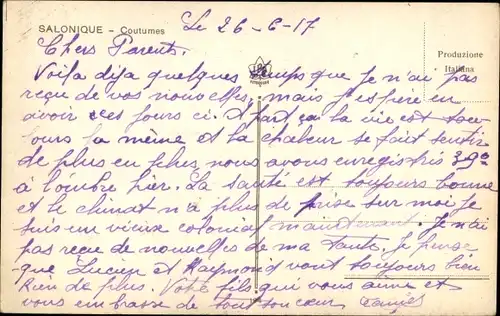 SALONIQUE - Coutumes
Le 26-6-17
Produzione Italiana
Chers Parents.
Voila dija quelques temps que je n'ai pas
reçu de vos nouvelles, mais j'espère en
avoir ces jours ci. A part ça la vie est tou
lours la même et la chaleur se fait sentir
de plus en plus, nous avons enregistris 39°
à l'ombre hier. La santé est toujours bonne
et le climat n'a plus de prise sur moi je
suis un vieux colonial maintenant. Je n'ai
pas reçu de nouvelles de ma tante. Je pense
que Lucien et Raymond vont toujours bien
Rien de plus. Votre fils qui vous aime et
vous embrasse de tout son cœur